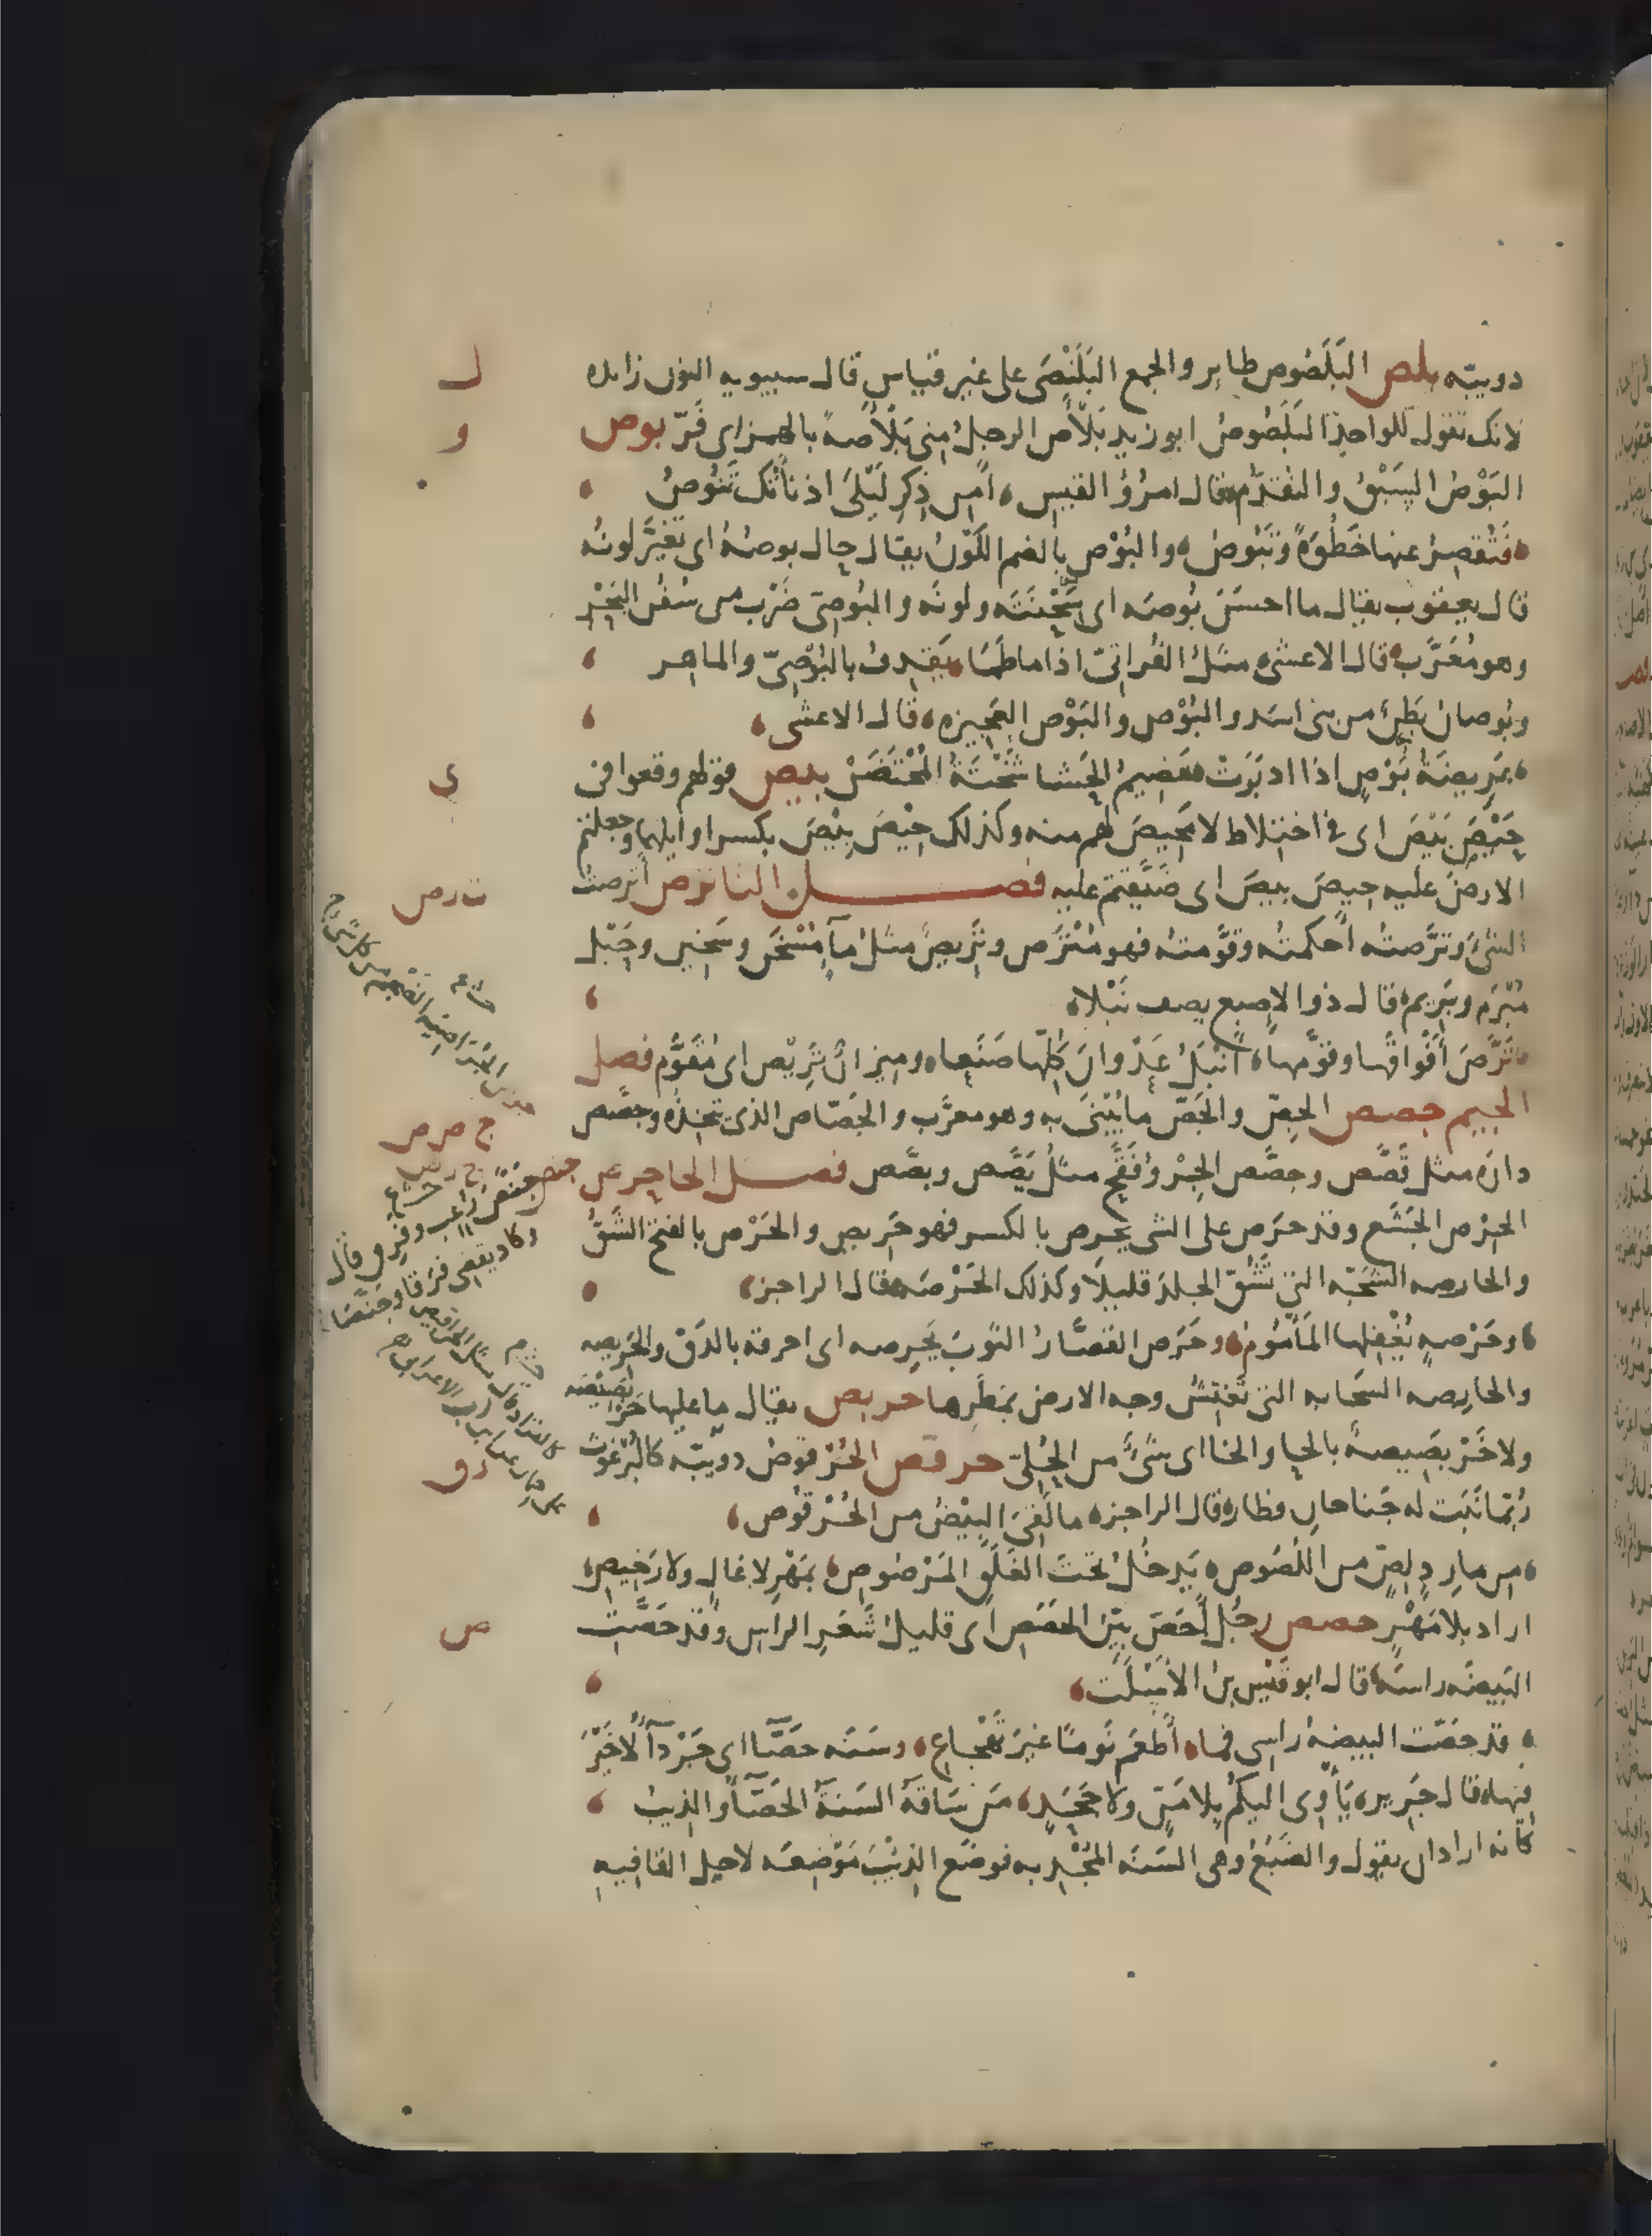 دويبّه بلص البَلَصُوص طاير والجمع البَلَنْصَى على غير قياس قال سيبويه النون زايده
لانك تقول للواحد البَلَصُوصُ ابو زيد بَلْأَص الرجلُ منى بَلْأَصةً بالهمز اى فَرّ بوص
البَوْصُ السَبْقُ والتقدّم قال امرُؤُ القيس أمِن ذِكرِ لَيْلَى اذ نأتْك تَنُوصُ
فتُقصِرُ عنها خَطْوةً وتَبُوصُ والبُوْص بالضم اللَوْنُ يقال حال بوصُهُ اى تغيَّر لونُه
قال يعقوب يقال ما احسَنَ بُوصَه اى سَحْنَتَه ولونَه والبُوصِىّ ضَرْب من سُفُن البَحْر
وهو مُعَرَّب قال الاعشى مثلُ الفُراتِىّ اذا ما طَمَا يَقذِفُ بالبُوْصِىّ والماهِر
وبُوصان بَطنٌ من بنى اسَد والبُوْص والبَوْص العَجِيزه قال الاعشى
عَرِيضَةُ بُوْصٍ اذا ادبَرَت هَضِيمُ الحَشا شَخْتَةُ المُحْتَضَنْ بيص قولهم وقعوا فى
حَيْصَ بَيْصَ اى فى اختلاط لا مَحِيصَ لهم منه وكذلك حِيْصَ بِيْصَ بكسر اوايلهما وجعلتم
الارضَ عليه حيصَ بيصَ اى ضَيَّقتم عليه فصل التا ترص أترصتُ
الشئ وترَّصتُه أحكمتُه وقوَّمتُه فهو مُتْرَص وتَرِيصٌ مثلُ مآءٍ مُسْخَن وسَخين وحَبْل
مُبْرَم وبَرِيم قال ذو الاصبع يصف نَبْلا
تَرَّصَ أفْواقَها وقوَّمها أنْبَلُ عَدْوانَ كلِّها صَنَعا وميزانٌ تَرِيْص اى مُقَوَّم فصل
الجيم جصص الجِصّ والجَصّ ما يُبْنَى به وهو معرَّب والجَصّاص الذى يتخِذُه وجصَّص
دارَه مثل قَصَّص وجصَّص الجِرْوُ فَقَّح مثلُ يَصَّص وبصَّص فصل الحا حرص
الحِرْص الجَشَع وقد حَرَص على الشى يحرِص بالكسر فهو حَرِيص والحَرْص بالفتح الشَقُّ
والحارصه الشَجّه التى تَشُقّ الجلدَ قليلًا وكذلك الحَرْصَه قال الراجز
وحَرْصه يُغْفِلها المَأْمُوم وحَرَص القصَّارُ الثوبَ يَحرِصه اى احرقه بالدَقّ والحَرِيصه
والحارِصه السَحابه التى تَقْشُر وجه الارض بمَطَرها حربص يقال ما عليها حَرْبَصِيْصَه
ولا خَرْبَصِيصةٌ بالحا والخا اى شئٌ من الحُلِىّ حرقص الحُرْقوصُ دويبّه كالبُرْغُوث
رُبّما نَبَت له جَناحان فطار قال الراجز ما لَقِىَ البِيْضُ من الحُرْقوص
من مارِدٍ لِصٍّ من اللُصُوص يَدخُلُ تحت الغَلَقِ المَرْصُوص بمَهْرٍ لا غالٍ ولا رَخِيص
اراد بِلا مَهْرٍ حصص رجُل أحَصُّ بيّن الحَصَصِ اى قليلُ شَعَر الراس وقد حَصَّت
البَيضَه راسَه قال ابو قَيْس بنُ الأسْلَت
قد حَصّت البيضهُ راسى فما أطْعَمُ نَومًا غيرَ تَهْجاعِ وسَنَه حَصَّآ اى جَرْدآ لا خَيْرَ
فيها قال جَرِير يَأْوِى اليكُمْ بِلا مَنٍّ ولا جَحَدٍ مَن سَاقَهُ السَنَةُ الحَصَّآ والذيبُ
كأنه اراد ان يقول والضَبُعُ وهى السَنَه المُجْدِبه فوضع الذئْبَ مَوْضِعَه لاجل القافيه
ل
و
ى
ت رص
ج ص ص
رق
ص